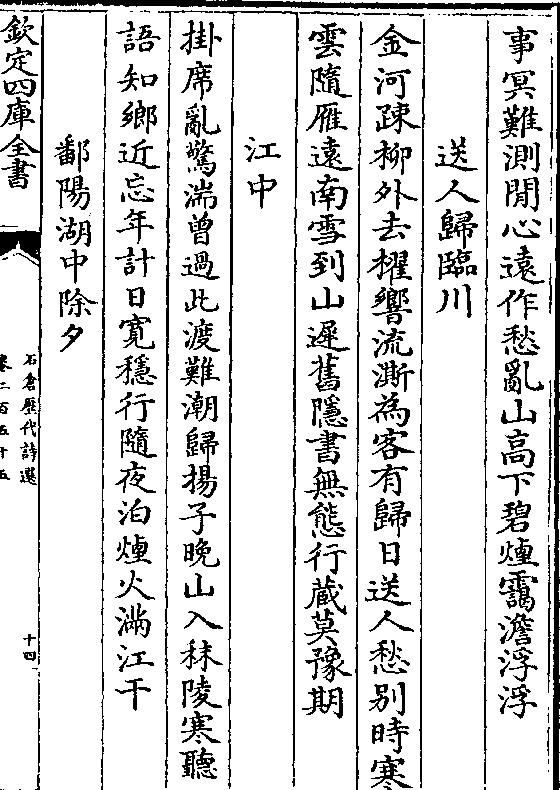 事冥難測閒心遠作愁亂山高下碧煙靄澹浮浮
送人歸臨川
金河疎柳外去櫂響流澌為客有歸日送人愁别時寒
雲隨雁遠南雪到山遲舊隱書無態行蔵莫豫期
江中
掛席亂驚湍曾過此渡難潮歸揚子晚山入秣陵寒聽
語知鄉近忘年計日寛穩行隨夜泊煙火滿江干
鄱陽湖中除夕
欽定四庫全書
石倉歴代詩選
卷二百五十五
十四